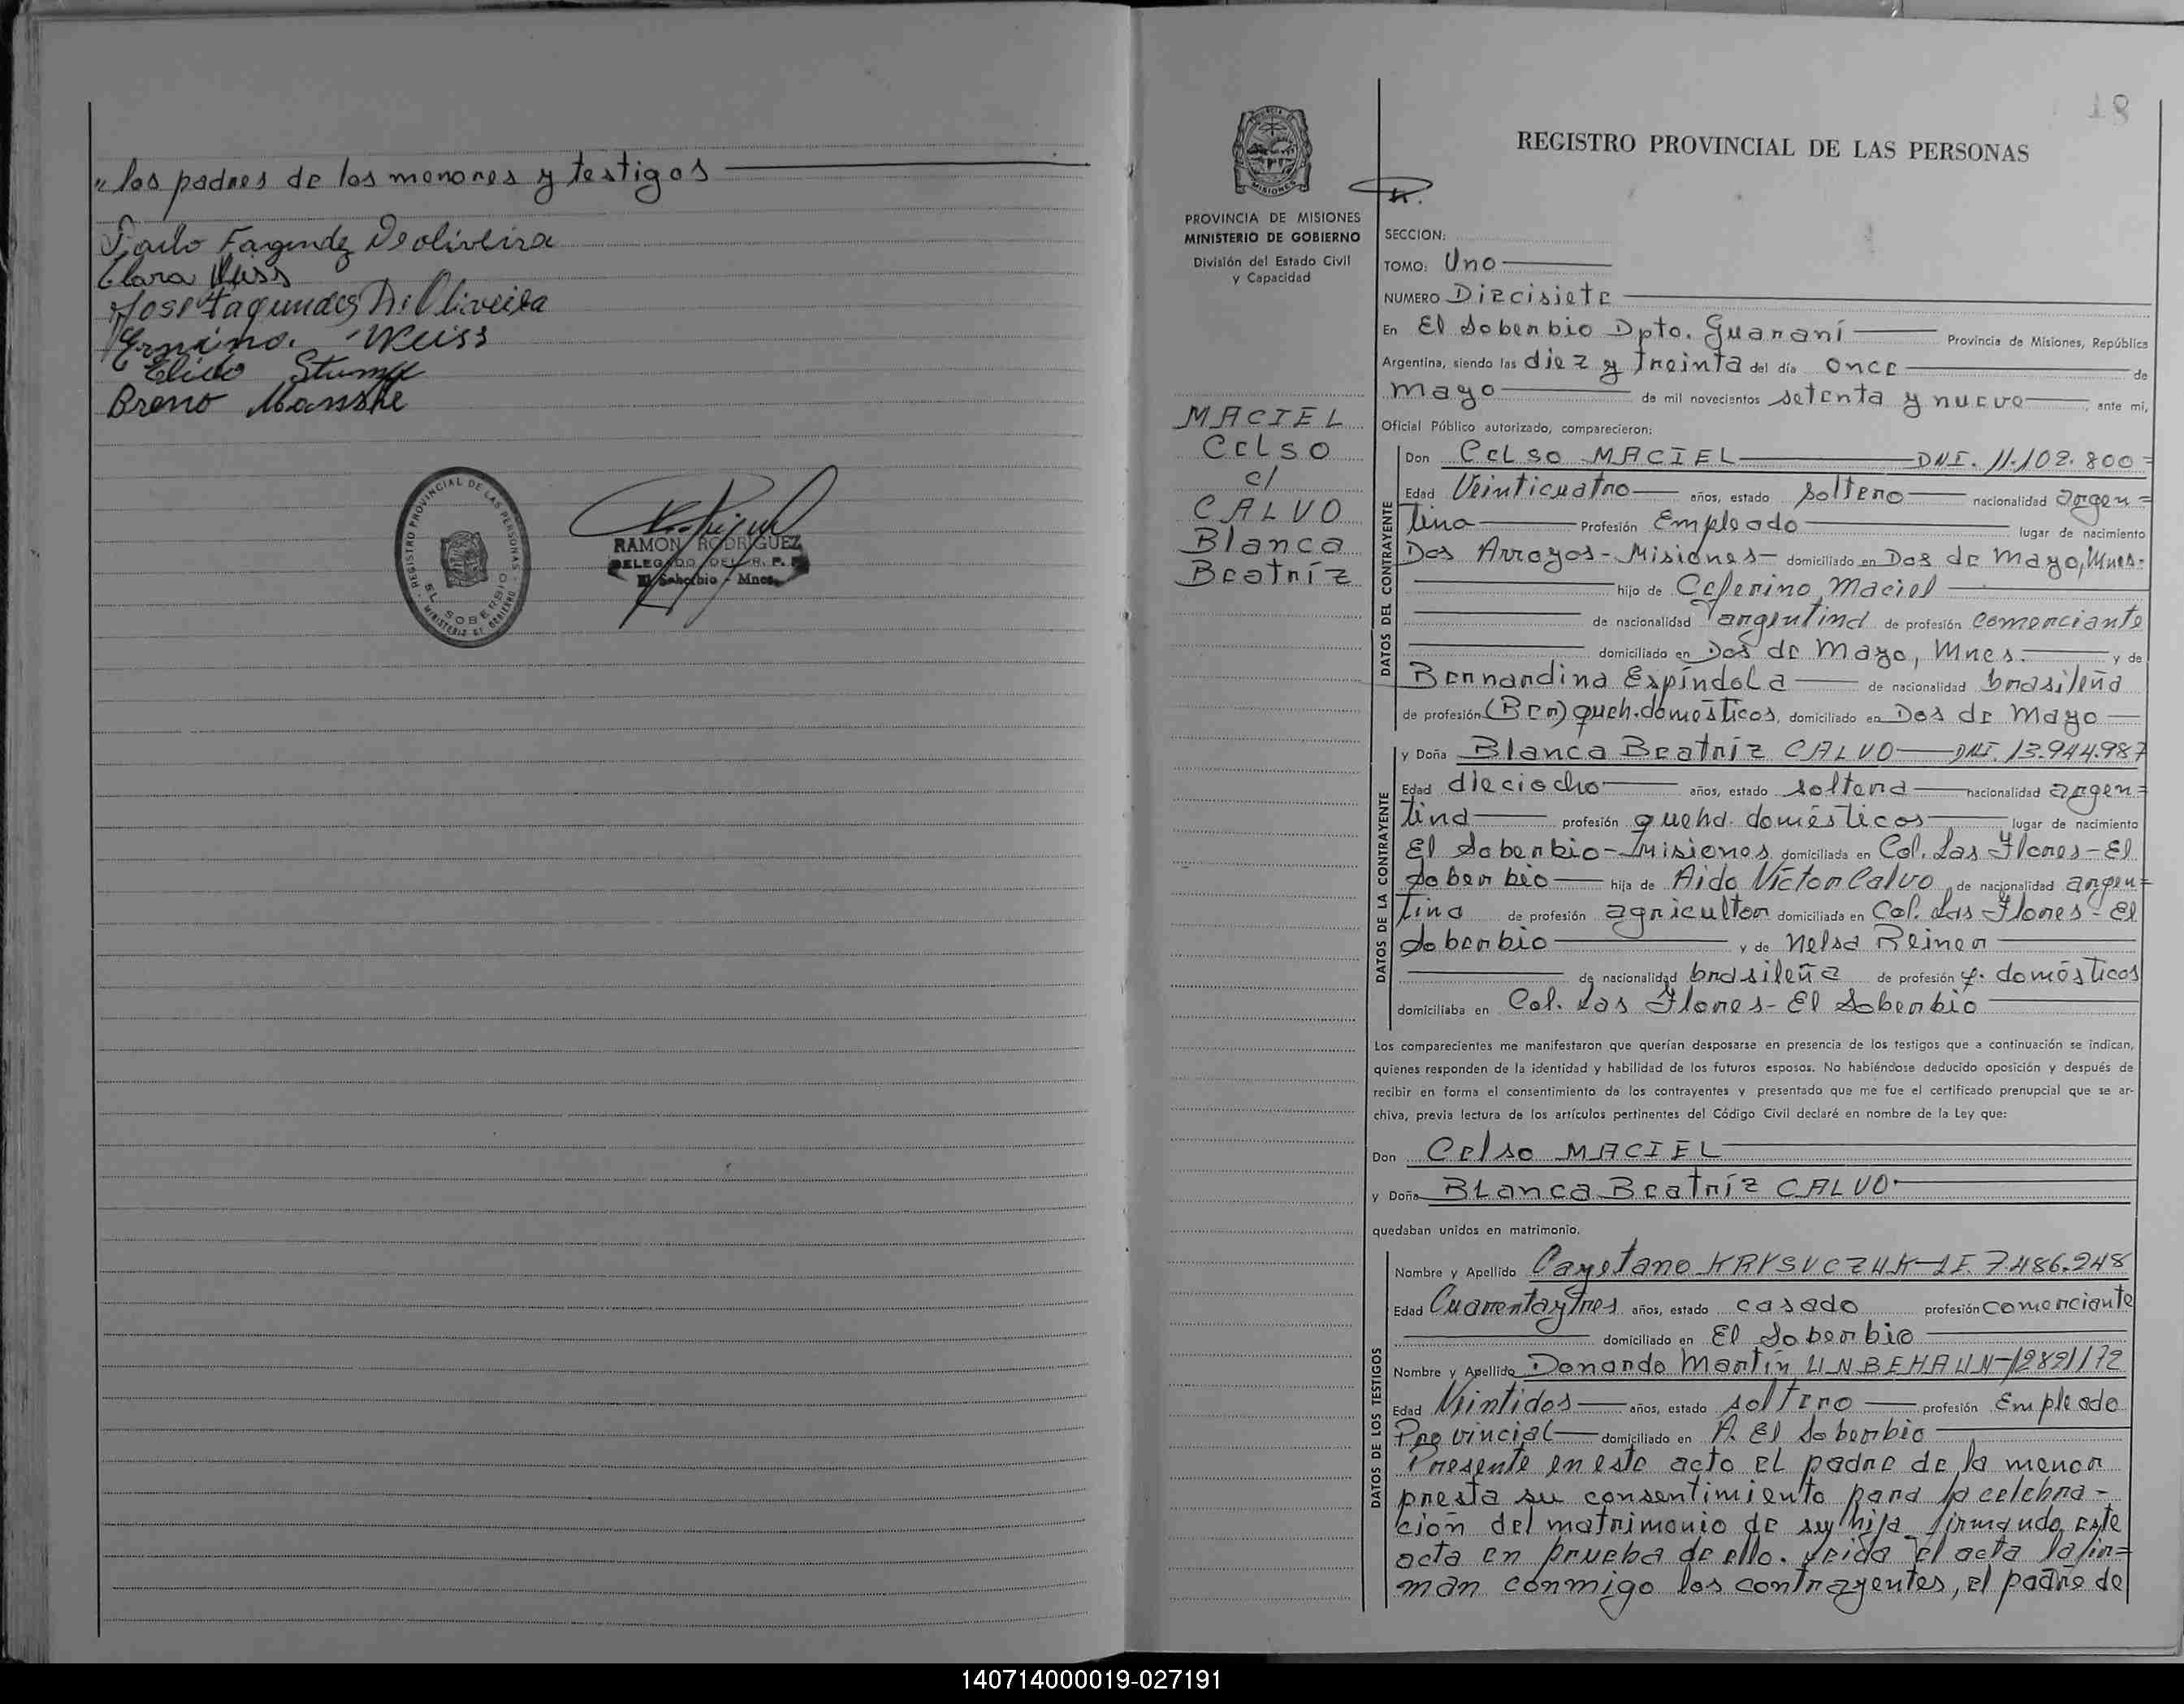 "los padres de los menores y testigos
Fagundez Deoliveira
Clara Weiss
Jose Fagundes D. Oliveira
Weiss
Elido Stumpf
Breno
REGISTRO PROVINCIAL DE LAS PERSONAS - MINISTERIO DE GOBIERNO -
EL SOBERBIO
RAMON RODRIGUEZ
DELEGADO DEL R. P. P.
El Soberbio - Mnes.
18
REGISTRO PROVINCIAL DE LAS PERSONAS
MISIONES
PROVINCIA DE MISIONES
MINISTERIO DE GOBIERNO
División del Estado Civil
y Capacidad
MACIEL
Celso
c/
CALVO
Blanca
Beatríz
SECCION:
TOMO: Uno
NUMERO Diecisiete
En El Soberbio Dpto. Guaraní Provincia de Misiones, República
Argentina, siendo las diez y treinta del día once de
mayo de mil novecientos setenta y nueve, ante mi,
Oficial Público autorizado, comparecieron:
DATOS DEL CONTRAYENTE
Don Celso MACIEL DNI. 11.102.800=
Edad Veinticuatro años, estado soltero nacionalidad argen=
tina Profesión Empleado lugar de nacimiento
Dos Arroyos-Misiones domiciliado en Dos de Mayo, Mnes.
hijo de Ceferino Maciel
de nacionalidad argentina de profesión comerciante
domiciliado en Dos de Mayo, Mnes. y de
Bernardina Espíndola de nacionalidad brasileña
de profesión (Ber) queh. domésticos, domiciliado en Dos de Mayo
DATOS DE LA CONTRAYENTE
y Doña Blanca Beatríz CALVO DNI. 13.944.987
Edad dieciocho años, estado soltera nacionalidad argen=
tina profesión queha. domésticos lugar de nacimiento
El Soberbio-Misiones domiciliada en Col. Las Flores-El
Soberbio hija de Aido Víctor Calvo de nacionalidad argen=
tina de profesión agricultor domiciliada en Col. Las Flores-El
Soberbio y de Nelsa Reiner
de nacionalidad brasileña de profesión q. domésticos
domiciliaba en Col. Las Flores-El Soberbio
Los comparecientes me manifestaron que querían desposarse en presencia de los testigos que a continuación se indican,
quienes responden de la identidad y habilidad de los futuros esposos. No habiéndose deducido oposición y después de
recibir en forma el consentimiento de los contrayentes y presentado que me fue el certificado prenupcial que se ar-
chiva, previa lectura de los artículos pertinentes del Código Civil declaré en nombre de la Ley que:
Don Celso MACIEL
y Doña Blanca Beatríz CALVO.
quedaban unidos en matrimonio.
DATOS DE LOS TESTIGOS
Nombre y Apellido Cayetano KRYSVCZUK-LE. 7.486.248
Edad Cuarentaytres años, estado casado profesión comerciante
domiciliado en El Soberbio
Nombre y Apellido Donardo Martín UNBEHAUN-12821172
Edad Veintidos años, estado soltero profesión Empleado
Provincial domiciliado en El Soberbio
Presente en este acto el padre de la menor
presta su consentimiento para la celebra-
ción del matrimonio de su hija firmando este
acta en prueba de ello. Leida el acta la fir=
man conmigo los contrayentes, el padre de
140714000019-027191